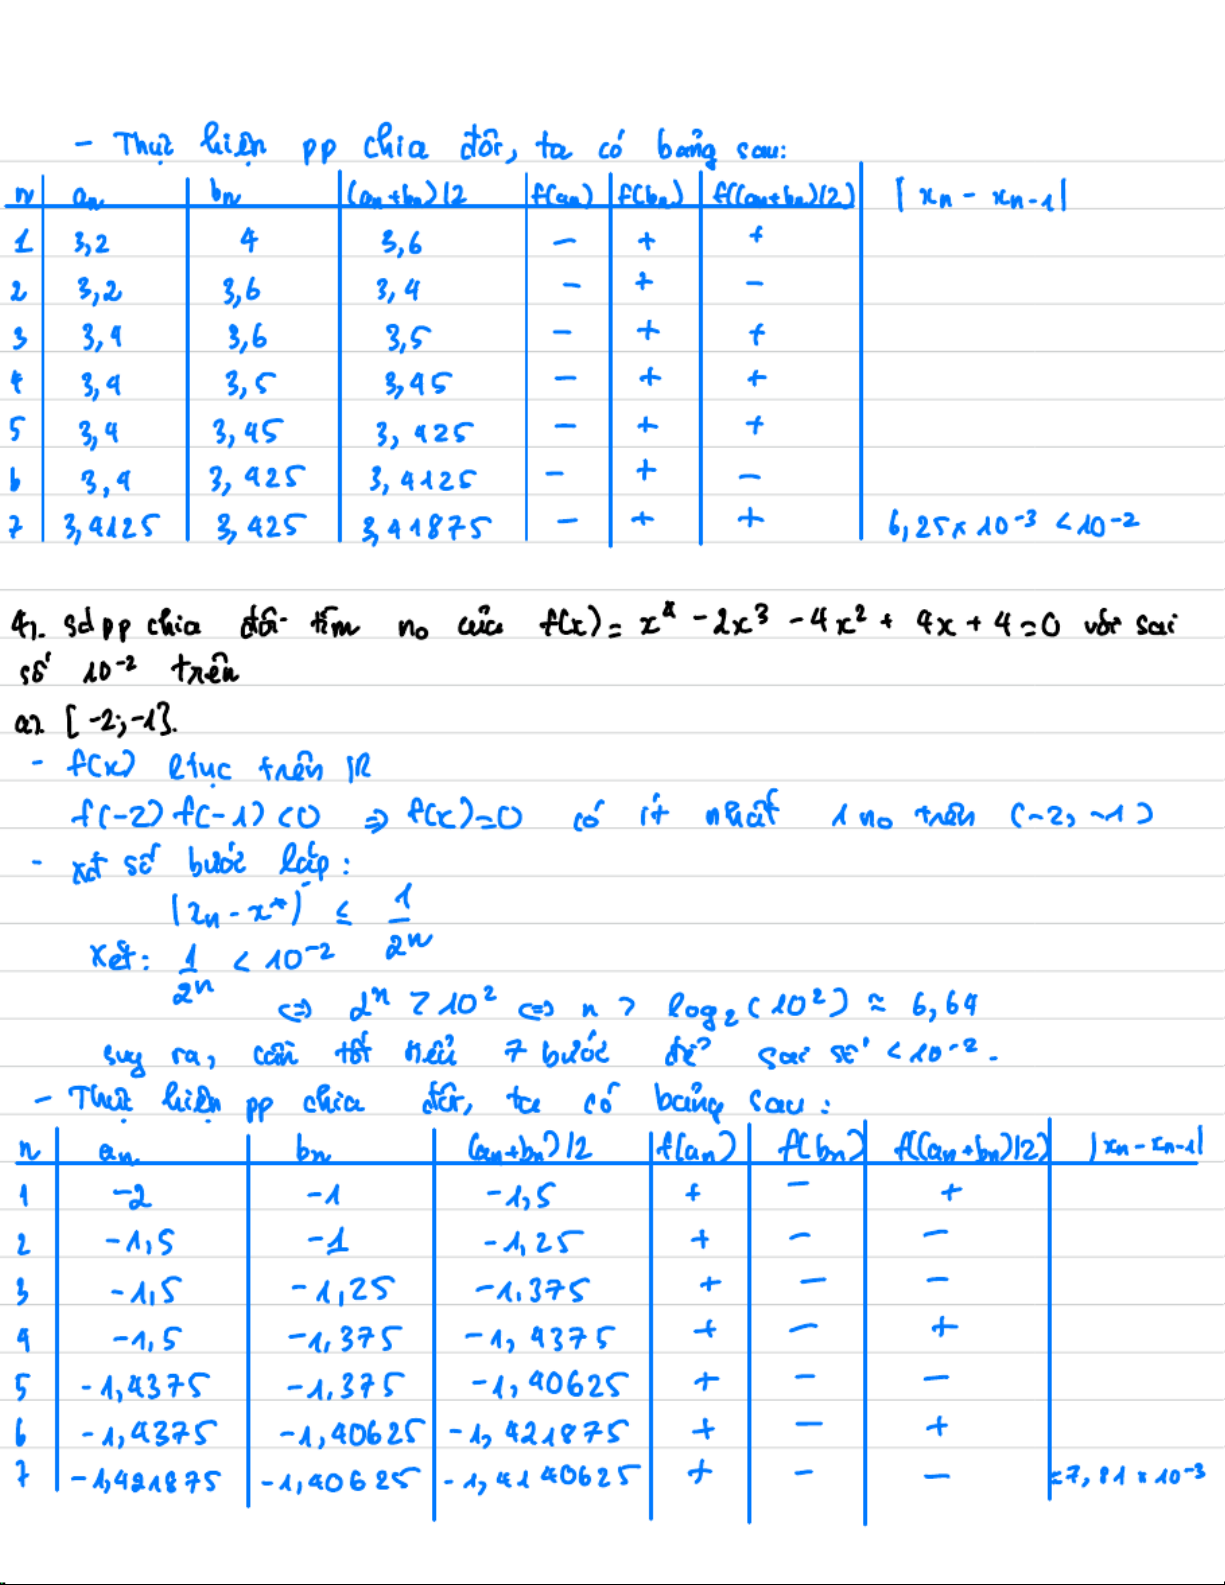 - Thực hiện pp chia đôi, ta có bảng sau:
n an bn (an+bn)/2 f(an) f(bn) f((an+bn)/2) |xn - xn-1|
1 3,2 4 3,6 - + +
2 3,2 3,6 3,4 - + -
3 3,4 3,6 3,5 - + +
4 3,4 3,5 3,45 - + +
5 3,4 3,45 3,425 - + +
6 3,4 3,425 3,4125 - + -
7 3,4125 3,425 3,41875 - + + 6,25 x 10^-3 < 10^-2
4). Sd pp chia đôi tìm no của f(x) = x^4 - 2x^3 - 4x^2 + 4x + 4 = 0 với sai
số 10^-2 trên
a). [-2;-1].
- f(x) ltục trên IR
f(-2) f(-1) < 0 => f(x)=0 có ít nhất 1 no trên (-2,-1)
- xđ số bước lặp:
|xn - x*| ≤ 1/2^n
Xét: 1/2^n < 10^-2
<=> 2^n > 10^2 <=> n > log2(10^2) ≈ 6,64
suy ra, cần tối thiểu 7 bước để sai số < 10^-2.
- Thực hiện pp chia đôi, ta có bảng sau:
n an bn (an+bn)/2 f(an) f(bn) f((an+bn)/2) |xn - xn-1|
1 -2 -1 -1,5 + - +
2 -1,5 -1 -1,25 + - -
3 -1,5 -1,25 -1.375 + - -
4 -1,5 -1,375 -1,4375 + - +
5 -1,4375 -1.375 -1,40625 + - -
6 -1,4375 -1,40625 -1,421875 + - +
7 -1,421875 -1,40625 -1,4140625 + - - ≈7,81 x 10^-3